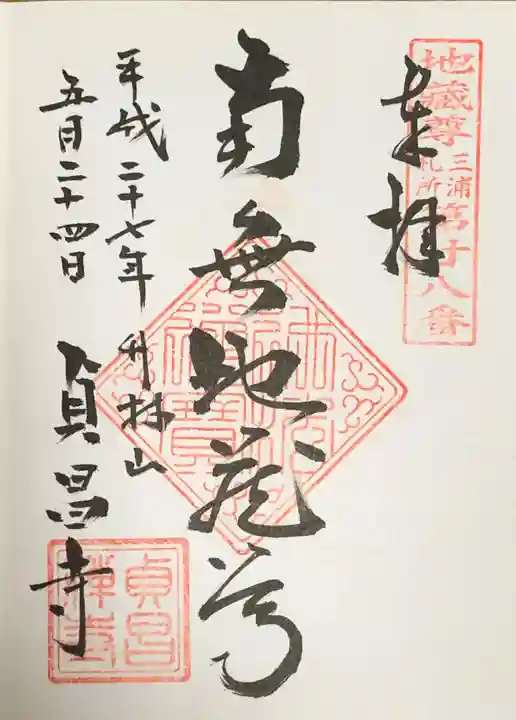 地蔵尊 三浦札所 第廿八番
奉拝
南無地蔵尊
平成二十七年 竹林山
五月二十四日 貞昌寺
貞昌
禅寺